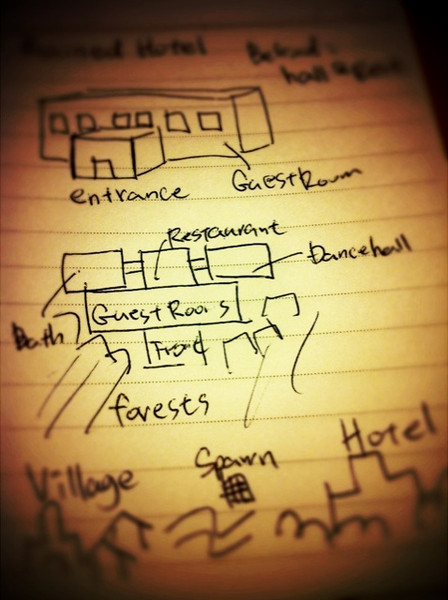 Hotel
entrance
GuestRoom
Restaurant
Dancehall
GuestRooms
Bath
Front
forests
Village
Spawn
Hotel